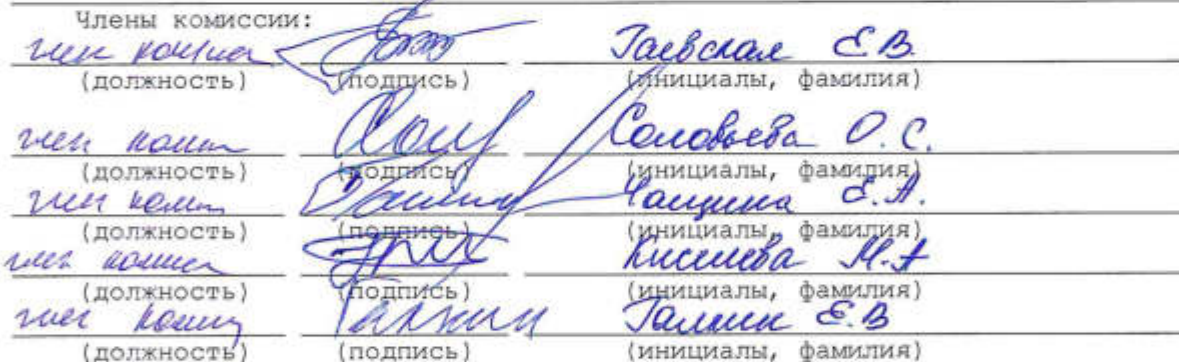 Члены комиссии:
член комис Гаевская Е.В.
(должность) (подпись) (инициалы, фамилия)
член комис Соловьева О.С.
(должность) (подпись) (инициалы, фамилия)
член комис Е.А.
(должность) (подпись) (инициалы, фамилия)
член комис Киселева М.А
(должность) (подпись) (инициалы, фамилия)
член комис Галкин Е.В
(должность) (подпись) (инициалы, фамилия)